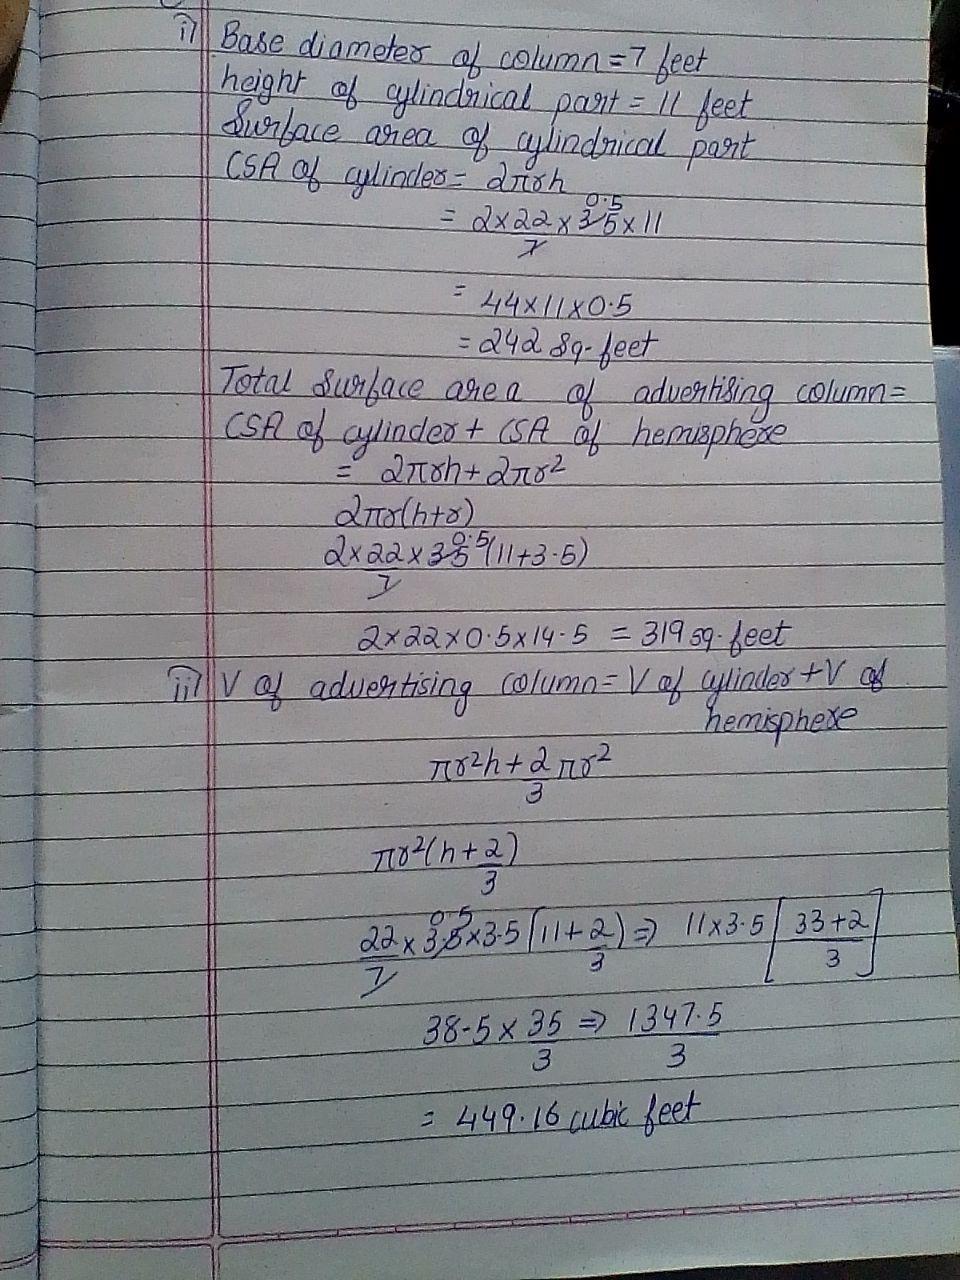 i) Base diameter of column = 7 feet
height of cylindrical part = 11 feet
Surface area of cylindrical part
CSA of cylinder = 2πrh
= 2×22/7 × 3.5 × 11 0.5
= 44×11×0.5
= 242 sq. feet
Total surface area of advertising column =
CSA of cylinder + CSA of hemisphere
= 2πrh + 2πr²
2πr(h+r)
2×22/7 × 3.5 0.5 (11+3.5)
2×22×0.5×14.5 = 319 sq. feet
ii) V of advertising column = V of cylinder + V of
hemisphere
πr²h + 2/3 πr²
πr²(h + 2/3)
22/7 × 3.5 0.5 × 3.5 (11 + 2/3) ⇒ 11×3.5 [33+2/3]
38.5 × 35/3 ⇒ 1347.5/3
= 449.16 cubic feet